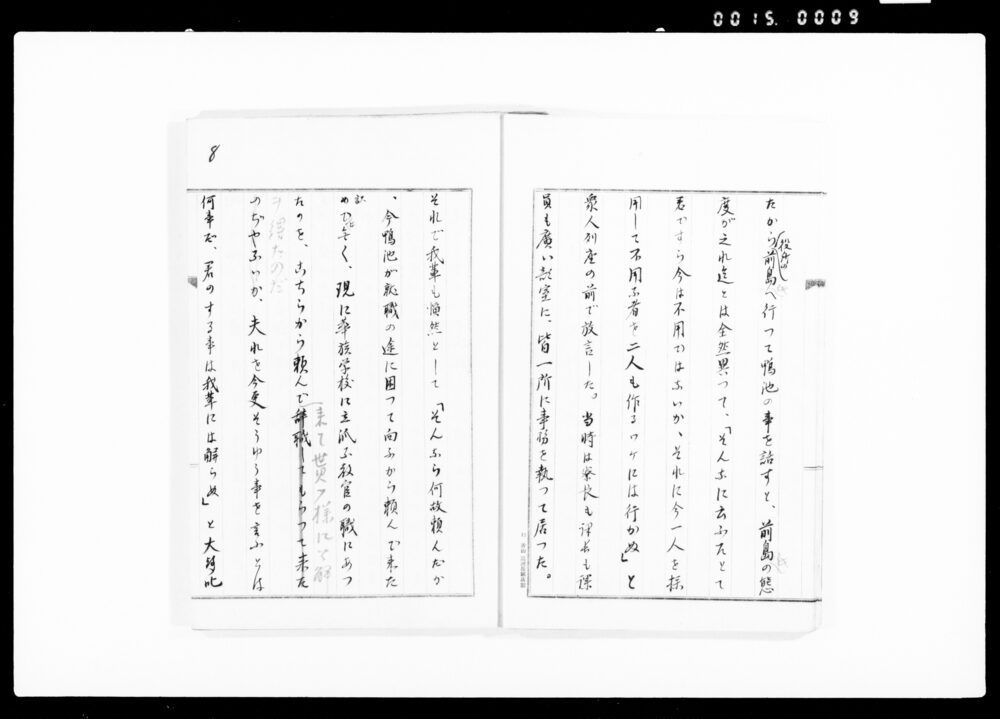 0015. 0009
たから前島へ行つて鴨池の事を話すと、前島の態
役所
度が之れ迄とは全然異つて、「そんなに云ふたとて
君ですら今は不用ではないか、それに今一人を採
用して不用な者を二人も作るワケには行かぬ」と
衆人列座の前で放言した。当時は寮長も課長も課
員も廣い部室に、皆一所に事務を執つて居つた。
8
それで我輩も憤然として「そんなら何故頼んだか
、今鴨池が就職の途に困つて向ふから頼んで来た
のぢやなく、現に華族学校に立派な教官の職にあつ
たのを、こちらから頼んで辞職してもらつて来た
来て貰ノ様にて解
のぢやないか、夫れを今更そうゆう事を言ふとは
何事だ、君のする事は我輩には解らぬ」と大